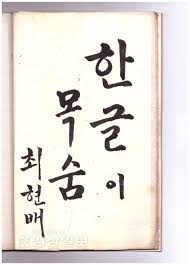 한글이
목숨
최현배